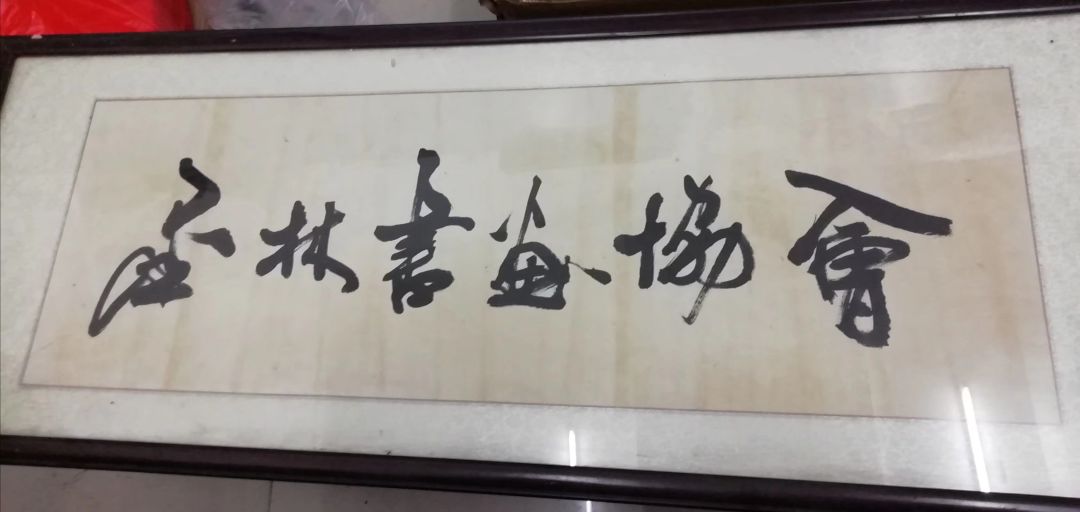 林書畫協會